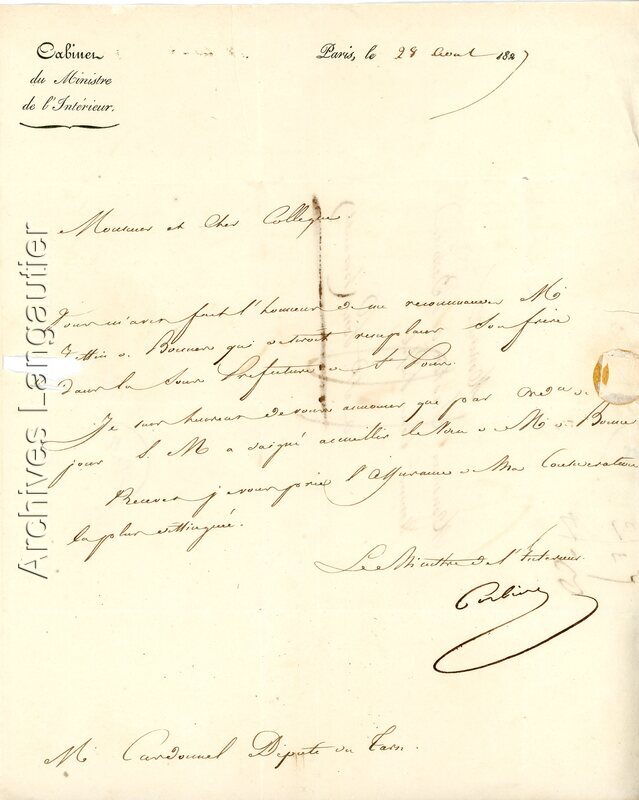 Cabinet
du Ministre
de l'Intérieur.
Paris, le 28 Aout 1827
Monsieur et Cher Collegue.
Vous m'avez fait l'honneur de me recommander Mr
de qui desiroit remplacer Son frère
dans la Sous Prefecture de St Pons.
Je suis heureux de vous annoncer que par ordce de ce
jour S. M a daigné accueillir le Voeu de Mr de
Recevez je vous prie l'Assurance de Ma Consideration
la plus distinguée.
Le Ministre de l'Interieur.
Corbiere
Mr Cardonnel Député du Tarn.
Archives Langautier